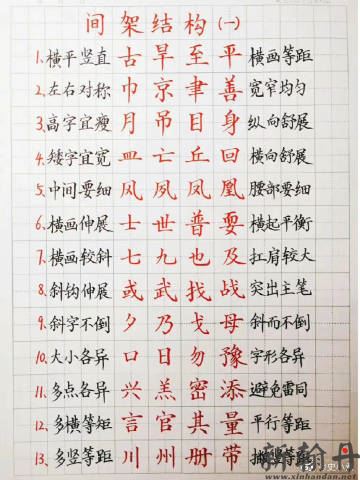 间架结构(一)
1.横平竖直 古旱至平 横画等距
2.左右对称 巾京聿善 宽窄均匀
3.高字宜瘦 月吊目身 纵向舒展
4.矮字宜宽 皿亡丘回 横向舒展
5.中间要细 风夙凤凰 腰部要细
6.横画伸展 士世普要 横起平衡
7.横画较斜 七九也及 扛肩较大
8.斜钩伸展 或武找战 突出主笔
9.斜字不倒 夕乃戈母 斜而不倒
10.大小各异 口日勿豫 字形各异
11.多点各异 兴羔密添 避免雷同
12.多横等矩 言官其量 平行等距
13.多竖等距 川州册带 等距
新翰丹
www.xinhandan.net